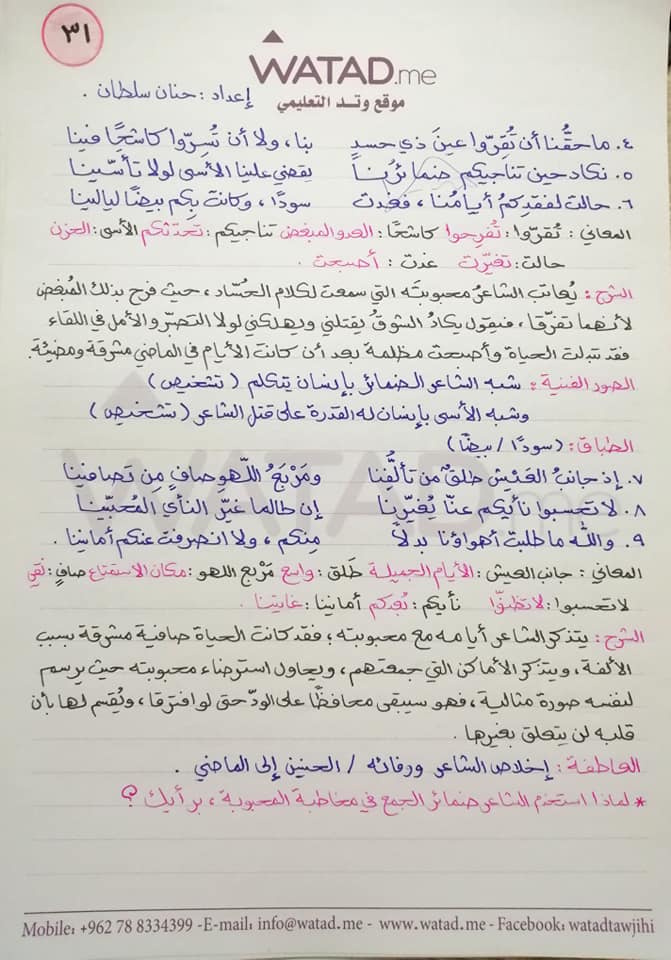 ٣١
WATAD.me
موقع وتد التعليمي
إعداد : حنان سلطان .
٤. ما حقُّنا أن تُقِرّوا عينَ ذي حسدٍ بنا، ولا أن تُسِرّوا كاشحًا فينا
٥. نكاد حين تناجيكم ضمائرُنا يقضي علينا الأسى لولا تأسّينا
٦. حالت لفقدِكمُ أيامُنا، فغدت سودًا، وكانت بكم بيضًا ليالينا
المعاني : تُقرّوا : تُفرحوا كاشحًا : العدو المبغض تناجيكم : تحدثكم الأسى : الحزن
حالت : تغيّرت غدت : أصبحت .
الشرح : يُعاتب الشاعرُ محبوبتَه التي سمعت لكلام الحُسّاد ، حيث فرح بذلك المُبغض
لأنهما تفرّقا ، فيقول يكادُ الشوقُ يقتلني ويهلكني لولا التصبّر والأمل في اللقاء
فقد تبدلت الحياة وأصبحت مظلمة بعد أن كانت الأيام في الماضي مشرقة ومضيئة.
الصور الفنية : شبه الشاعر الضمائر بإنسان يتكلم ( تشخيص )
وشبه الأسى بإنسان له القدرة على قتل الشاعر ( تشخيص )
الطباق : ( سودًا / بيضًا )
٧. إذ جانبُ العَيْش طلقٌ من تألُّفنا ومَرْبَعُ اللّهو صافٍ مِن تصافينا
٨. لا تحسبوا نأيكم عنّا يُغيّرنا إن طالما غيّر النأي المُحبّينا
٩. والله ما طلبت أهواؤنا بدلًا مِنكم ، ولا انصرفت عنكم أمانينا .
المعاني : جانب العيش : الأيام الجميلة طَلق : واسع مَرْبع اللهو : مكان الاستمتاع صافٍ : نقي
لا تحسبوا : لا تظنّوا نأيكم : بُعدكم أمانينا : غايتنا .
الشرح : يتذكر الشاعر أيامه مع محبوبته ؛ فقد كانت الحياة صافية مشرقة بسبب
الألفة ، ويتذكر الأماكن التي جمعتهم ، ويحاول استرضاء محبوبته حيث يرسم
لنفسه صورة مثالية ، فهو سيبقى محافظًا على الودّ حتى لو افترقا ، ويُقسم لها بأن
قلبه لن يتعلق بغيرها .
العاطفة : إخلاص الشاعر ووفائه / الحنين إلى الماضي .
* لماذا استخدم الشاعر ضمائر الجمع في مخاطبة المحبوبة ، برأيك ؟
Mobile: +962 78 8334399 -E-mail: info@watad.me - www.watad.me - Facebook: watadtawjihi